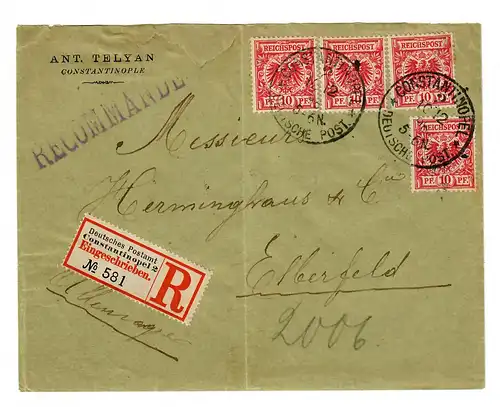 ANT. TELYAN
CONSTANTINOPLE
RECOMMANDÉ
REICHSPOST REICHSPOST REICHSPOST
10 PF. 10 PF. 10 PF. 10
CONSTANTINOPEL
12
5-6N.
DEUTSCHE POST
REICHSPOST
PF. 10 PF.
Messieurs
Herminghaus & Cie
Elberfeld
Deutsches Postamt
Constantinopel 2
Eingeschrieben.
№ 581
R
Allemagne
2006